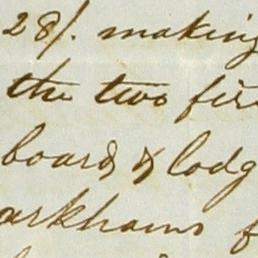 28/. making
the two fir
board & lodg
arkhams f